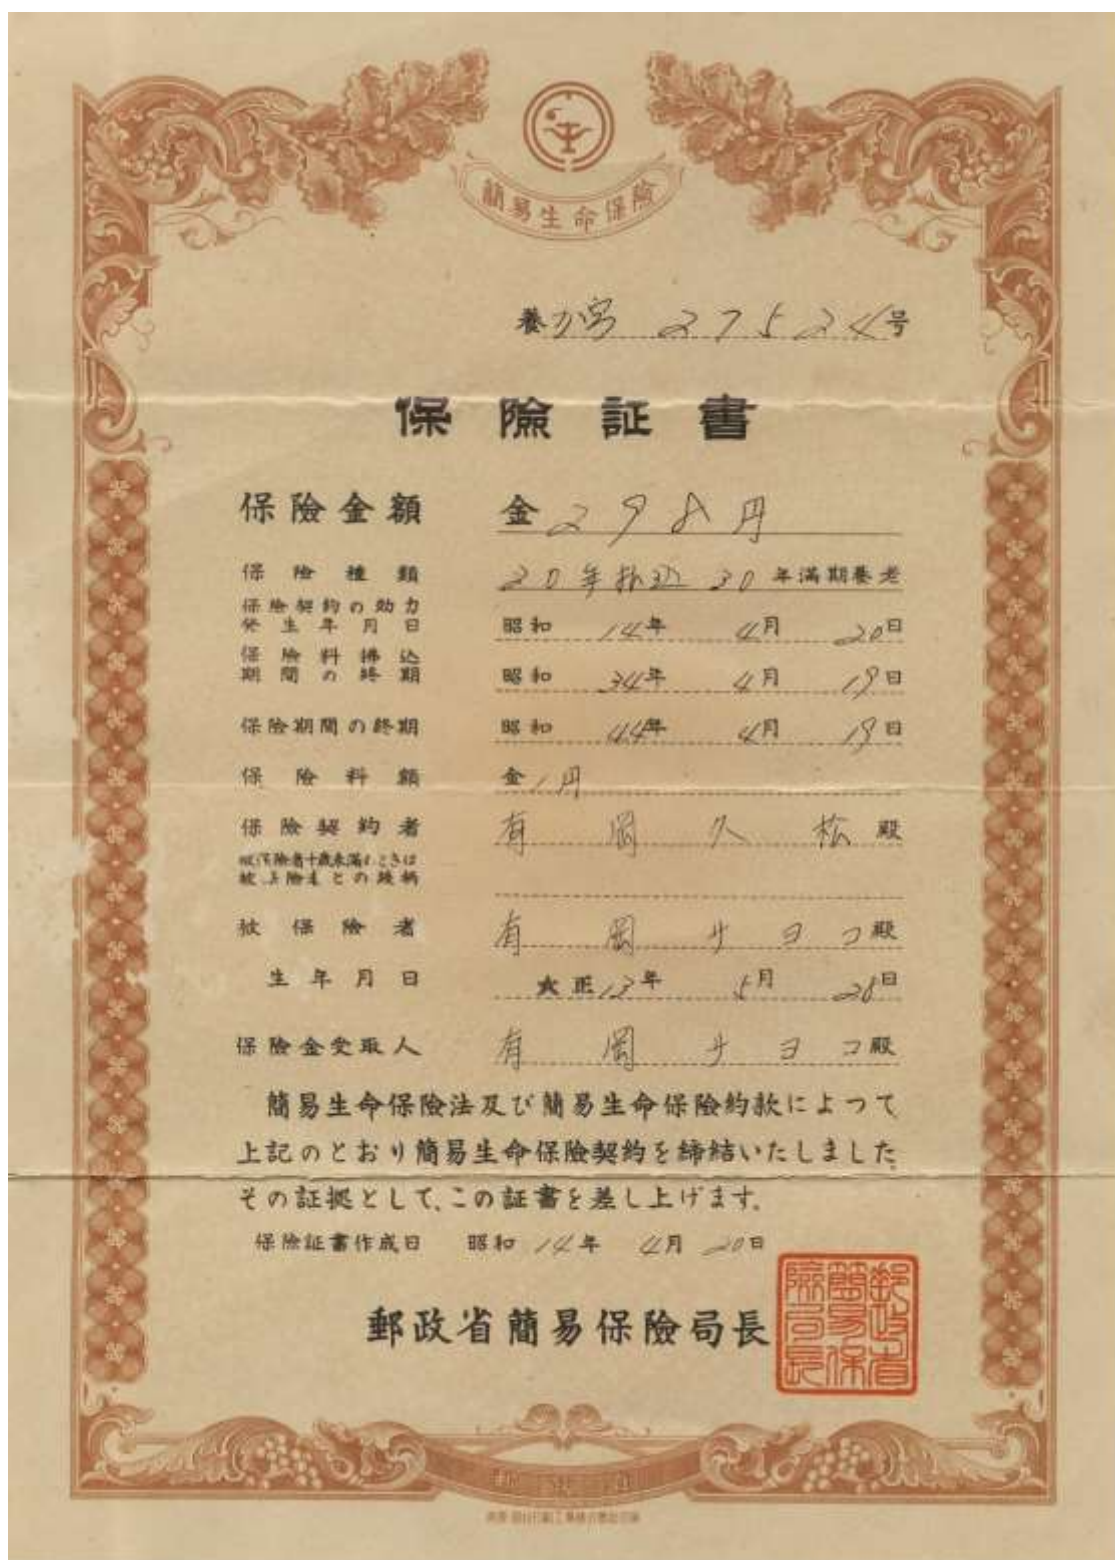 簡易生命保険
養 力宮 27524号
保險証書
保險金額 金 298円
保險種類 20年払込 30年満期養老
保險契約の効力
発生年月日 昭和 14年 4月 20日
保險料拂込
期間の終期 昭和 34年 4月 19日
保險期間の終期 昭和 44年 4月 19日
保險料額 金 1円
保險契約者 有岡久松殿
被保險者十歳未満のときは
被保險者との続柄
被保險者 有岡サヨコ殿
生年月日 大正 13年 5月 28日
保險金受取人 有岡サヨコ殿
簡易生命保險法及び簡易生命保險約款によつて
上記のとおり簡易生命保險契約を締結いたしました。
その証拠として、この証書を差し上げます。
保險証書作成日 昭和 14年 4月 20日
郵政省簡易保險局長
郵政省
簡易保
險局長